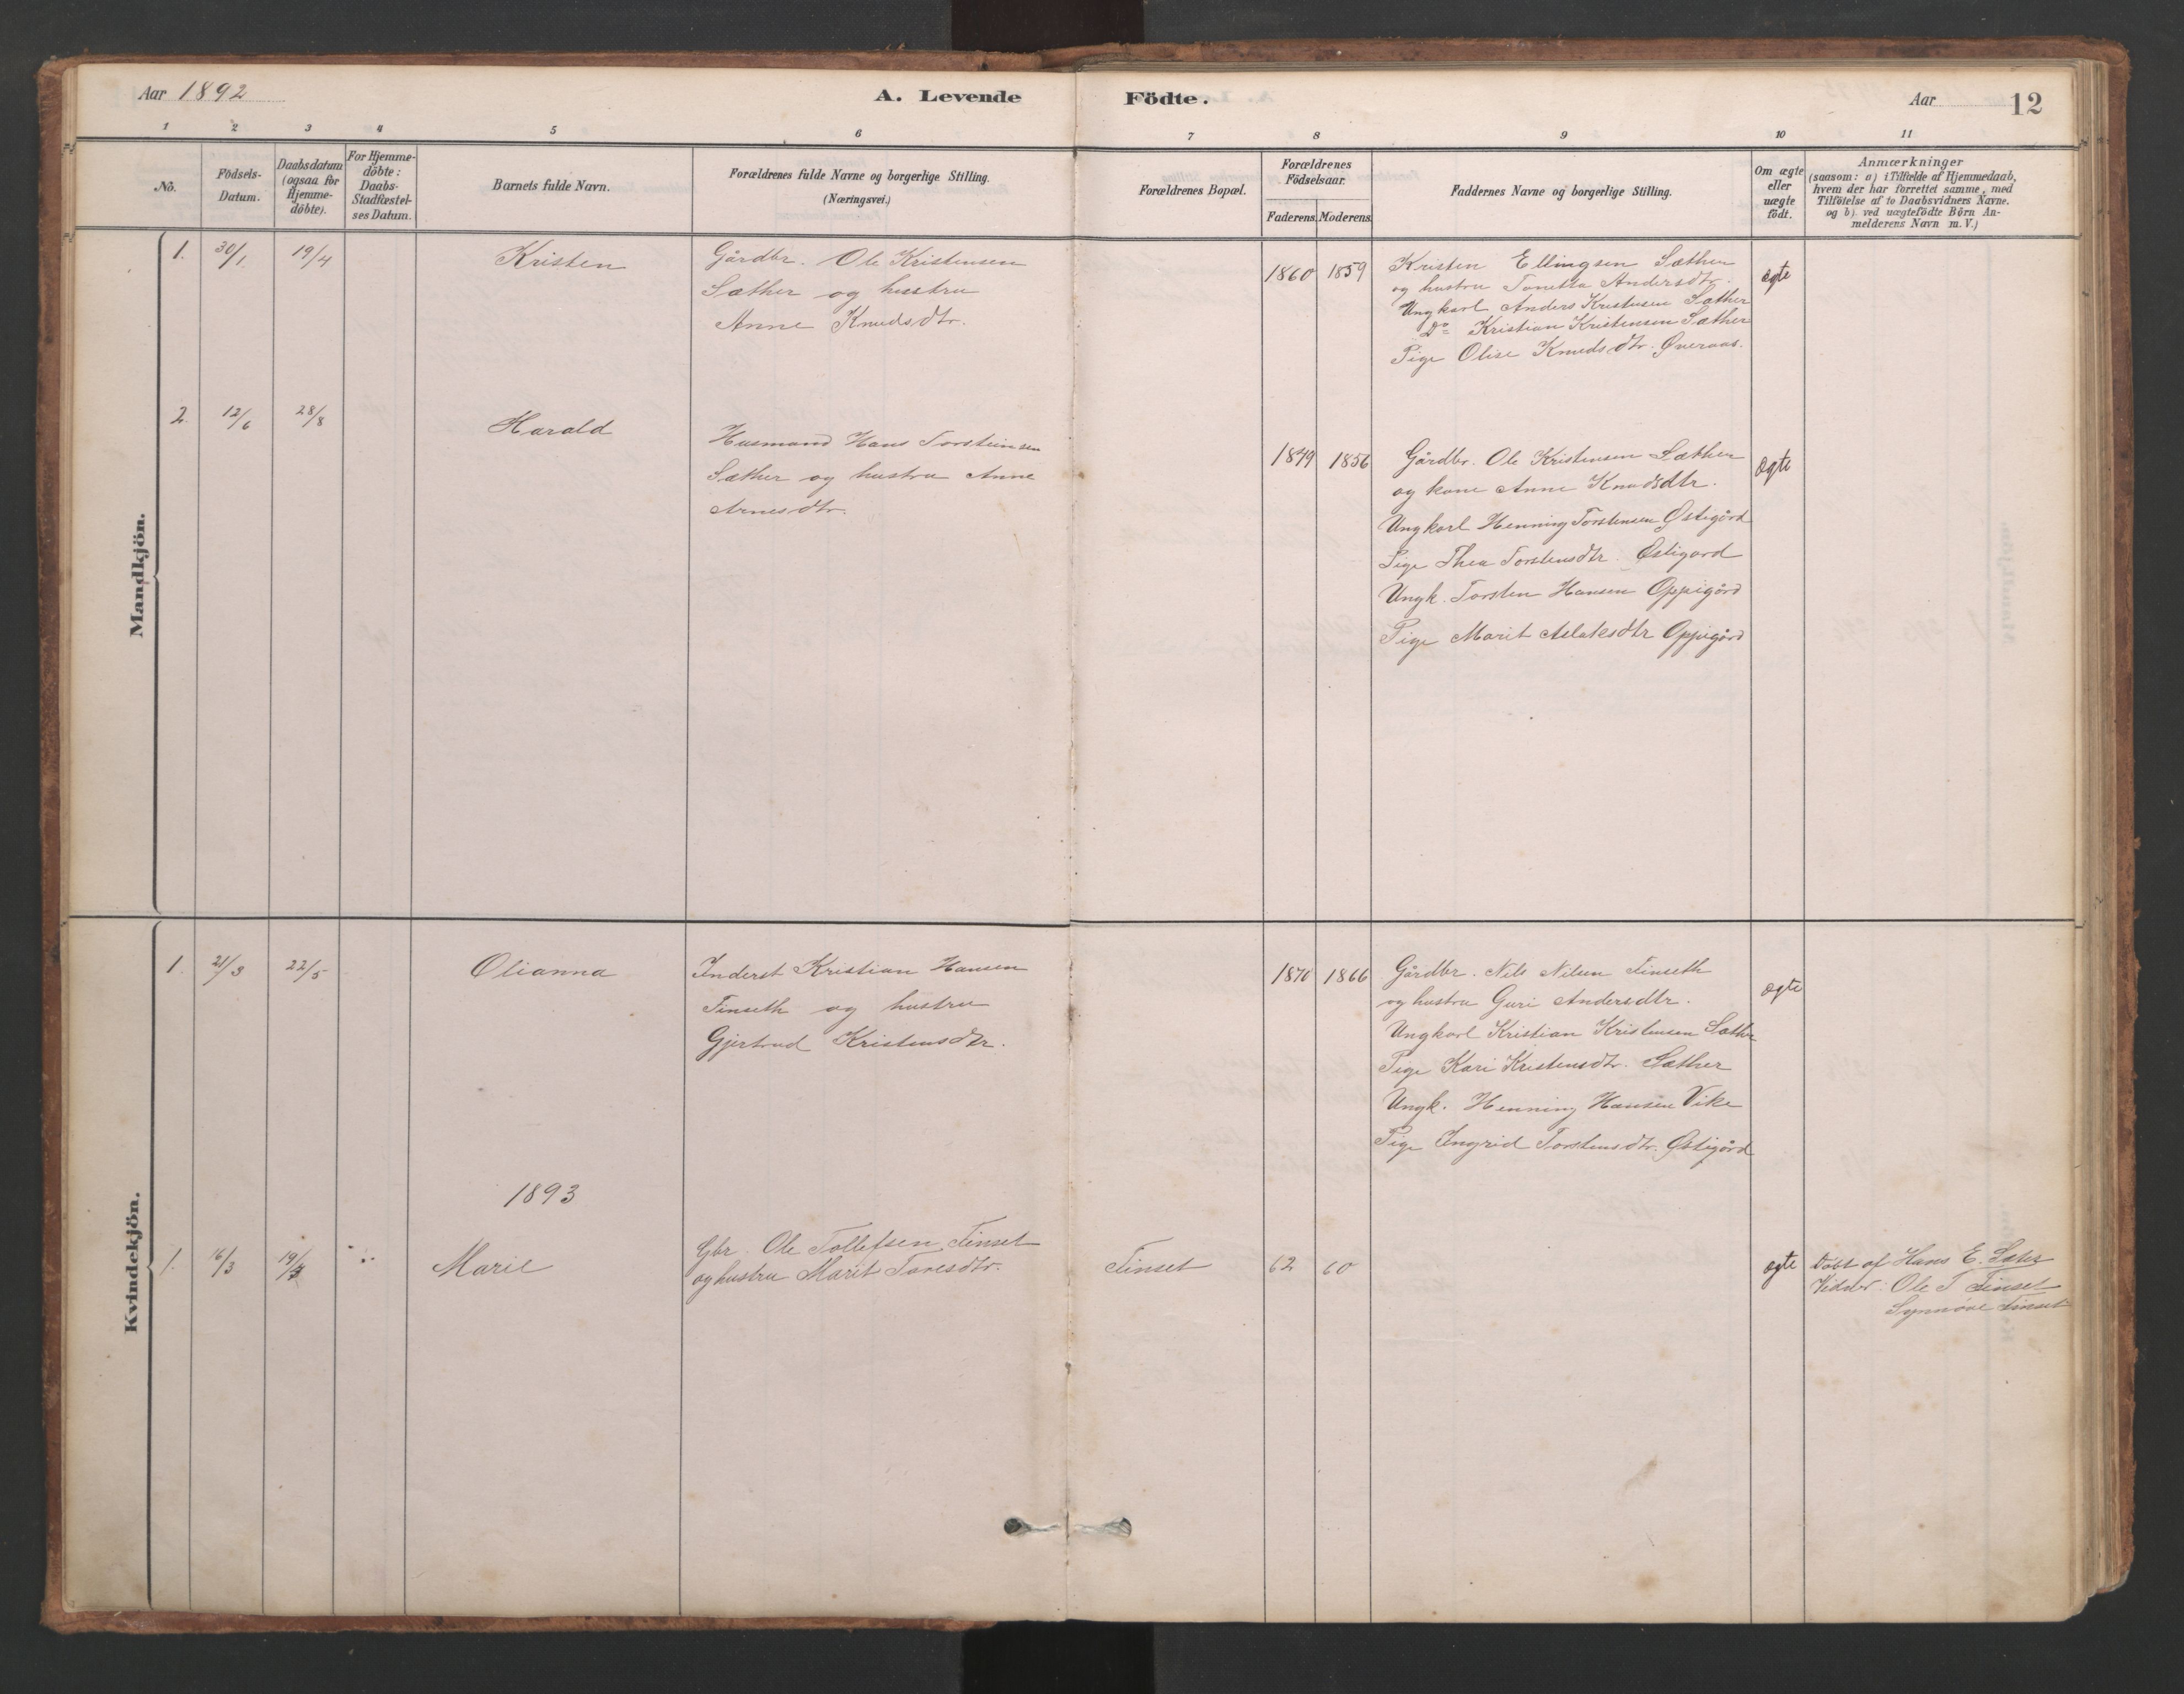 Aar 1892
A. Levende Födte.
Aar 12
1 2 3 4 5 6 7 8 9 10 11
No.
Födsels-
Datum.
Daabsdatum
(ogsaa for
Hjemme-
döbte).
For Hjemme-
döbte:
Daabs-
Stadfæstel-
ses Datum.
Barnets fulde Navn.
Forældrenes fulde Navne og borgerlige Stilling.
(Næringsvei.)
Forældrenes Bopæl.
Forældrenes
Födselsaar.
Faderens. Moderens.
Faddernes Navne og borgerlige Stilling.
Om ægte
eller
uægte
födt.
Anmærkninger
(saasom: a) i Tilfælde af Hjemmedaab,
hvem der har forrettet samme, med
Tilföielse af to Daabsvidners Navne.
og b) ved uægtefödte Börn An-
melderens Navn m. V.)
Mandkjön.
1. 30/1 19/4 Kristen
Gårdbr. Ole Kristensen
Sæther og hustru
Anne Knudsdtr.
1860 1859
Kristen Ellingsen Sæther
og hustru Tonetta Andersdtr.
Ungkarl Anders Kristensen Sæther
Do Kristian Kristensen Sæther
Pige Olise Knudsdtr. Øveraas.
ægte
2. 12/6 28/8 Harald
Husmand Hans Torsteinsen
Sæther og hustru Anne
Arnesdtr.
1849 1856
Gårdbr. Ole Kristensen Sæther
og kone Anne Knudsdtr.
Ungkarl Henning Torstensen Østigård
Pige Thea Torstensdtr Østigard
Ungk. Torsten Hansen Oppigård
Pige Marit Aslaksdtr Oppigård
ægte
Kvindekjön.
1. 21/3 22/5 Olianna
Inderst Kristian Hansen
Finseth og hustru
Gjertrud Kristensdtr.
1870 1866
Gårdbr. Nils Nilsen Finseth
og hustru Guri Andersdtr.
Ungkarl Kristian Kristensen Sæther
Pige Kari Kristensdtr. Sæther
Ungk. Henning Hansen Vike
Pige Ingrid Torstensdtr. Østigård
ægte
1893
1. 16/3 19/3 Marie
Gbr. Ole Tollefsen Finset
og hustru Marit Toresdtr.
Finset
62 60
ægte
Døbt af Hans E. Sæter
Vidner: Ole T Finset
Synnøve Finset